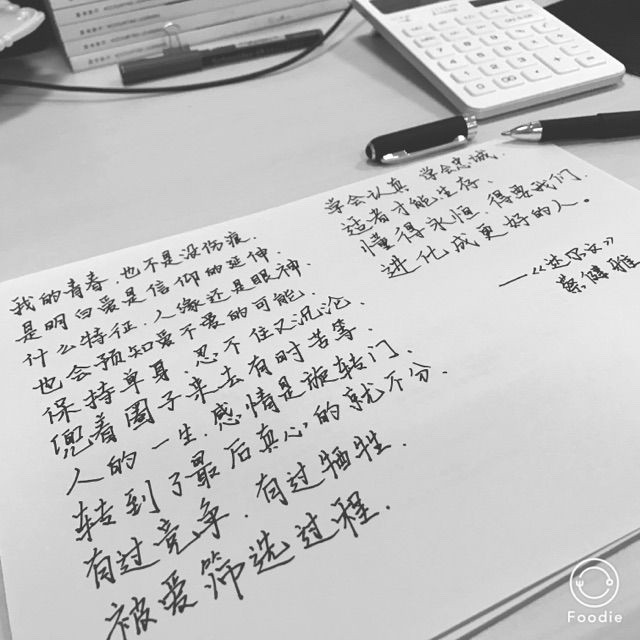 我的青春,也不是没伤痕,
是明白爱是信仰的延伸,
什么特征,人缘还是眼神,
也会预知爱不爱的可能,
保持单身,忍不住又沉沦,
兜着圈子来去有时苦等,
人的一生,感情是旋转门,
转到了最后真心的就不分,
有过竞争,有过牺牲,
被爱筛选过程,
学会认真,学会忠诚,
适者才能生存、
懂得永恒,得要我们,
进化成更好的人。
—《达尔文》
蔡健雅
Foodie